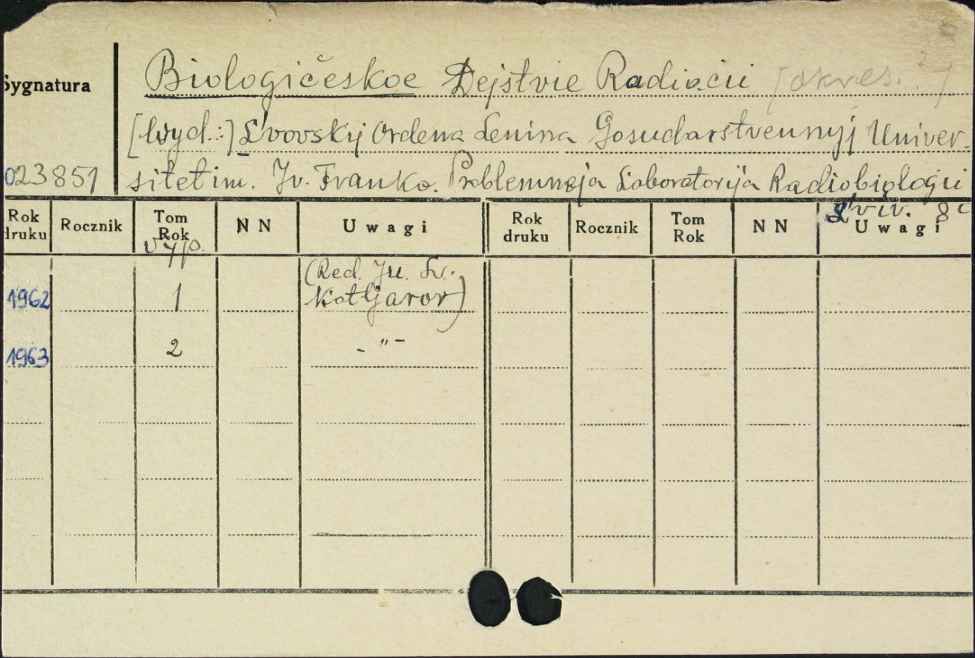 Sygnatura
Biologičeskoe Dejstvie Radiacii [okres.]
[Wyd.:] L'vovskij Ordena Lenina Gosudarstvennyj Univer-
023851 sitet im. Iv. Franko. Problemnaja Laboratorija Radiobiologii
L'viv. 8°
Rok druku Rocznik Tom Rok NN Uwagi Rok druku Rocznik Tom Rok NN Uwagi
vyp.
(Red. Ju. Lv.
1962 1 Kotljarov)
1963 2 - " -